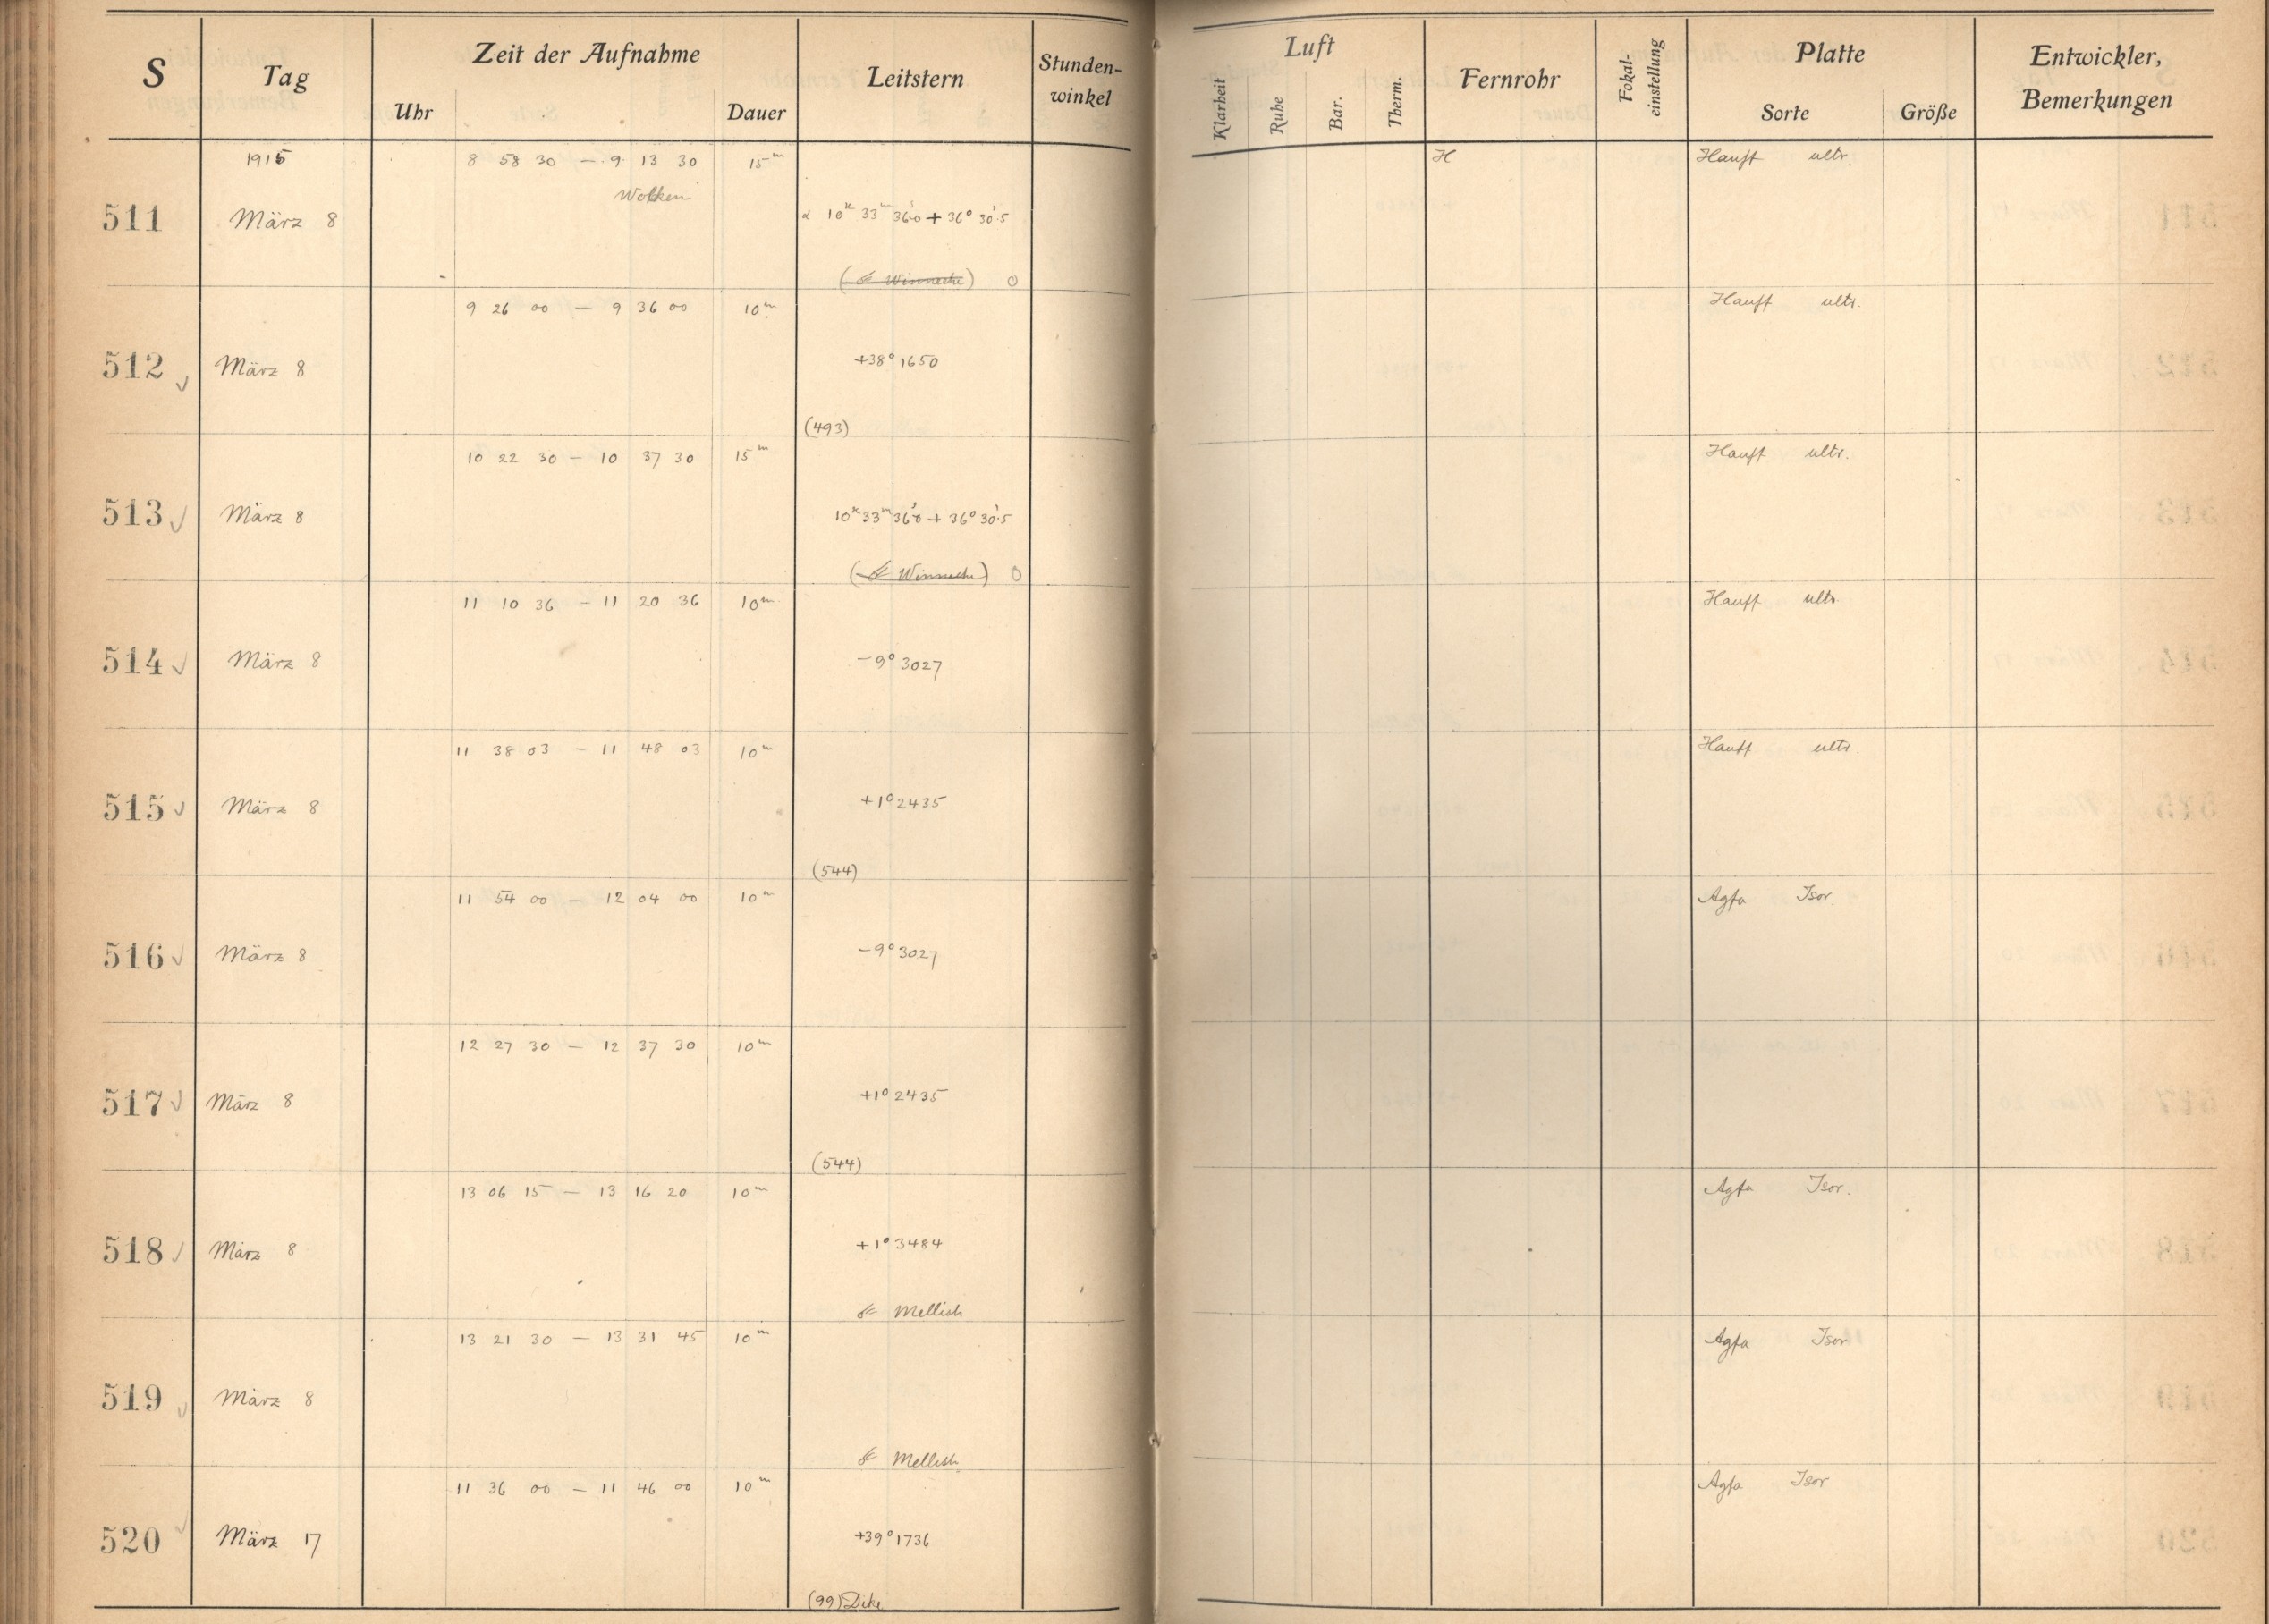 S Tag Zeit der Aufnahme Leitstern Stunden-winkel Luft Fernrohr Fokal-einstellung Platte Entwickler, Bemerkungen
Uhr Dauer Klarheit Ruhe Bar. Therm. Sorte Größe
1915 8 58 30 — 9 13 30 15m H Hauft ultr.
Wolken
511 März 8 α 10h 33m 36s.0 + 36° 30'.5
(Winnecke) 0
9 26 00 — 9 36 00 10m Hauft ultr.
512 März 8 +38° 1650
(493)
10 22 30 — 10 37 30 15m Hauft ultr.
513 März 8 10h 33m 36s.0 + 36° 30'.5
(Winnecke) 0
11 10 36 — 11 20 36 10m Hauft ultr.
514 März 8 -9° 3027
11 38 03 — 11 48 03 10m Hauft ultr.
515 März 8 +1° 2435
(544)
11 54 00 — 12 04 00 10m Agfa Isor.
516 März 8 -9° 3027
12 27 30 — 12 37 30 10m
517 März 8 +1° 2435
(544)
13 06 15 — 13 16 20 10m Agfa Isor.
518 März 8 +1° 3484
Mellish
13 21 30 — 13 31 45 10m Agfa Isor
519 März 8
Mellish
11 36 00 — 11 46 00 10m Agfa Isor
520 März 17 +39° 1736
(99) Dike